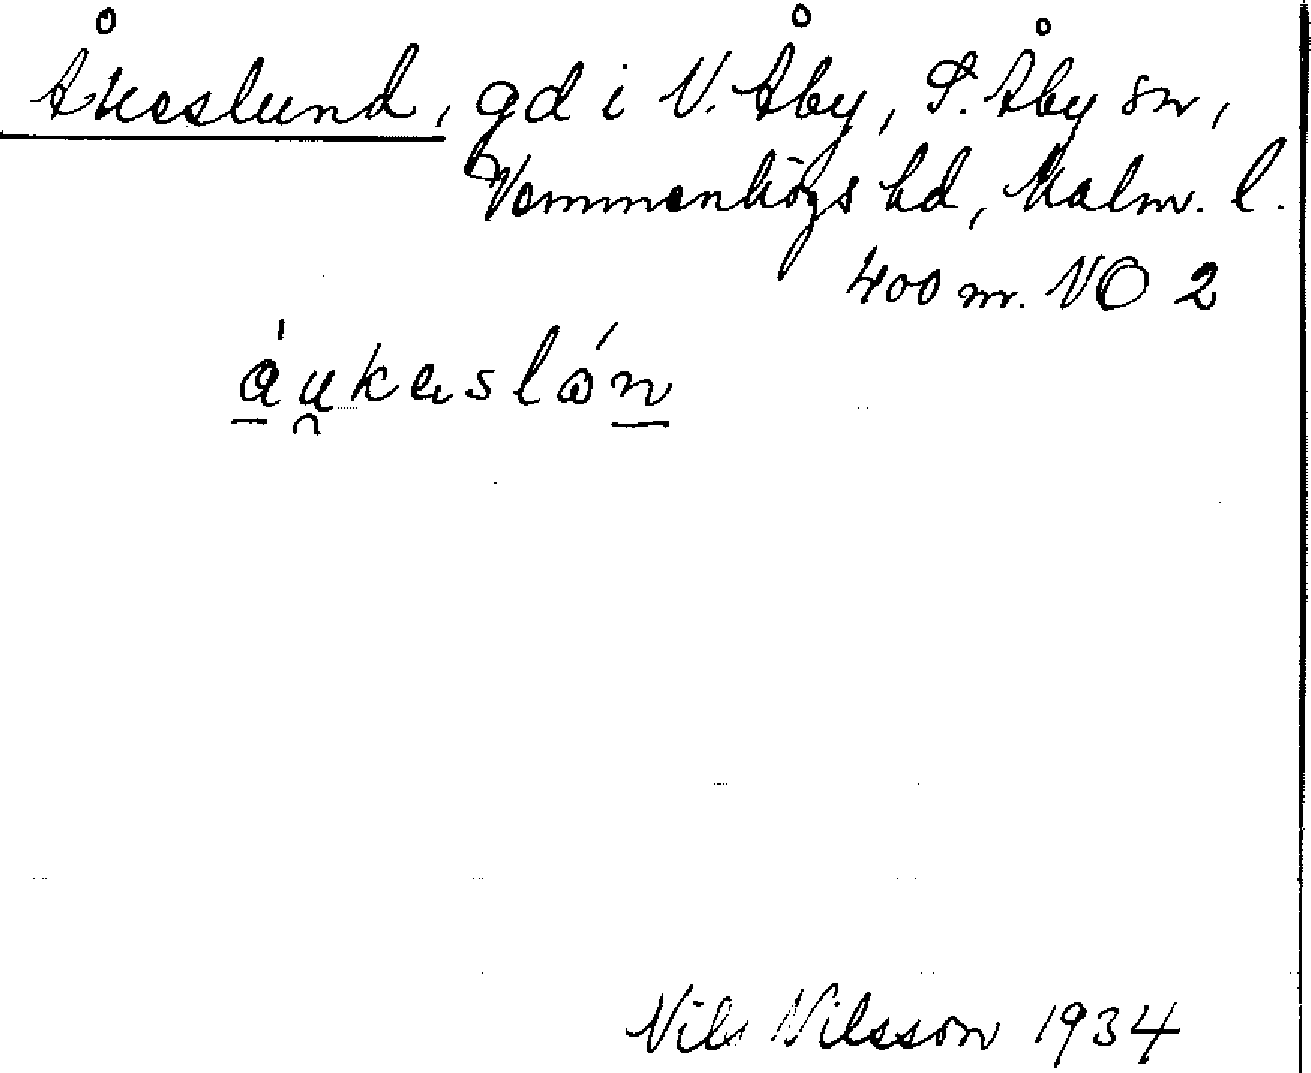 Åkeslund, gd i V. Åby, S. Åby sn,
Vemmenhögs hd, Malm. l.
400 m. NO 2
áu̯kəslón
Nils Nilsson 1934